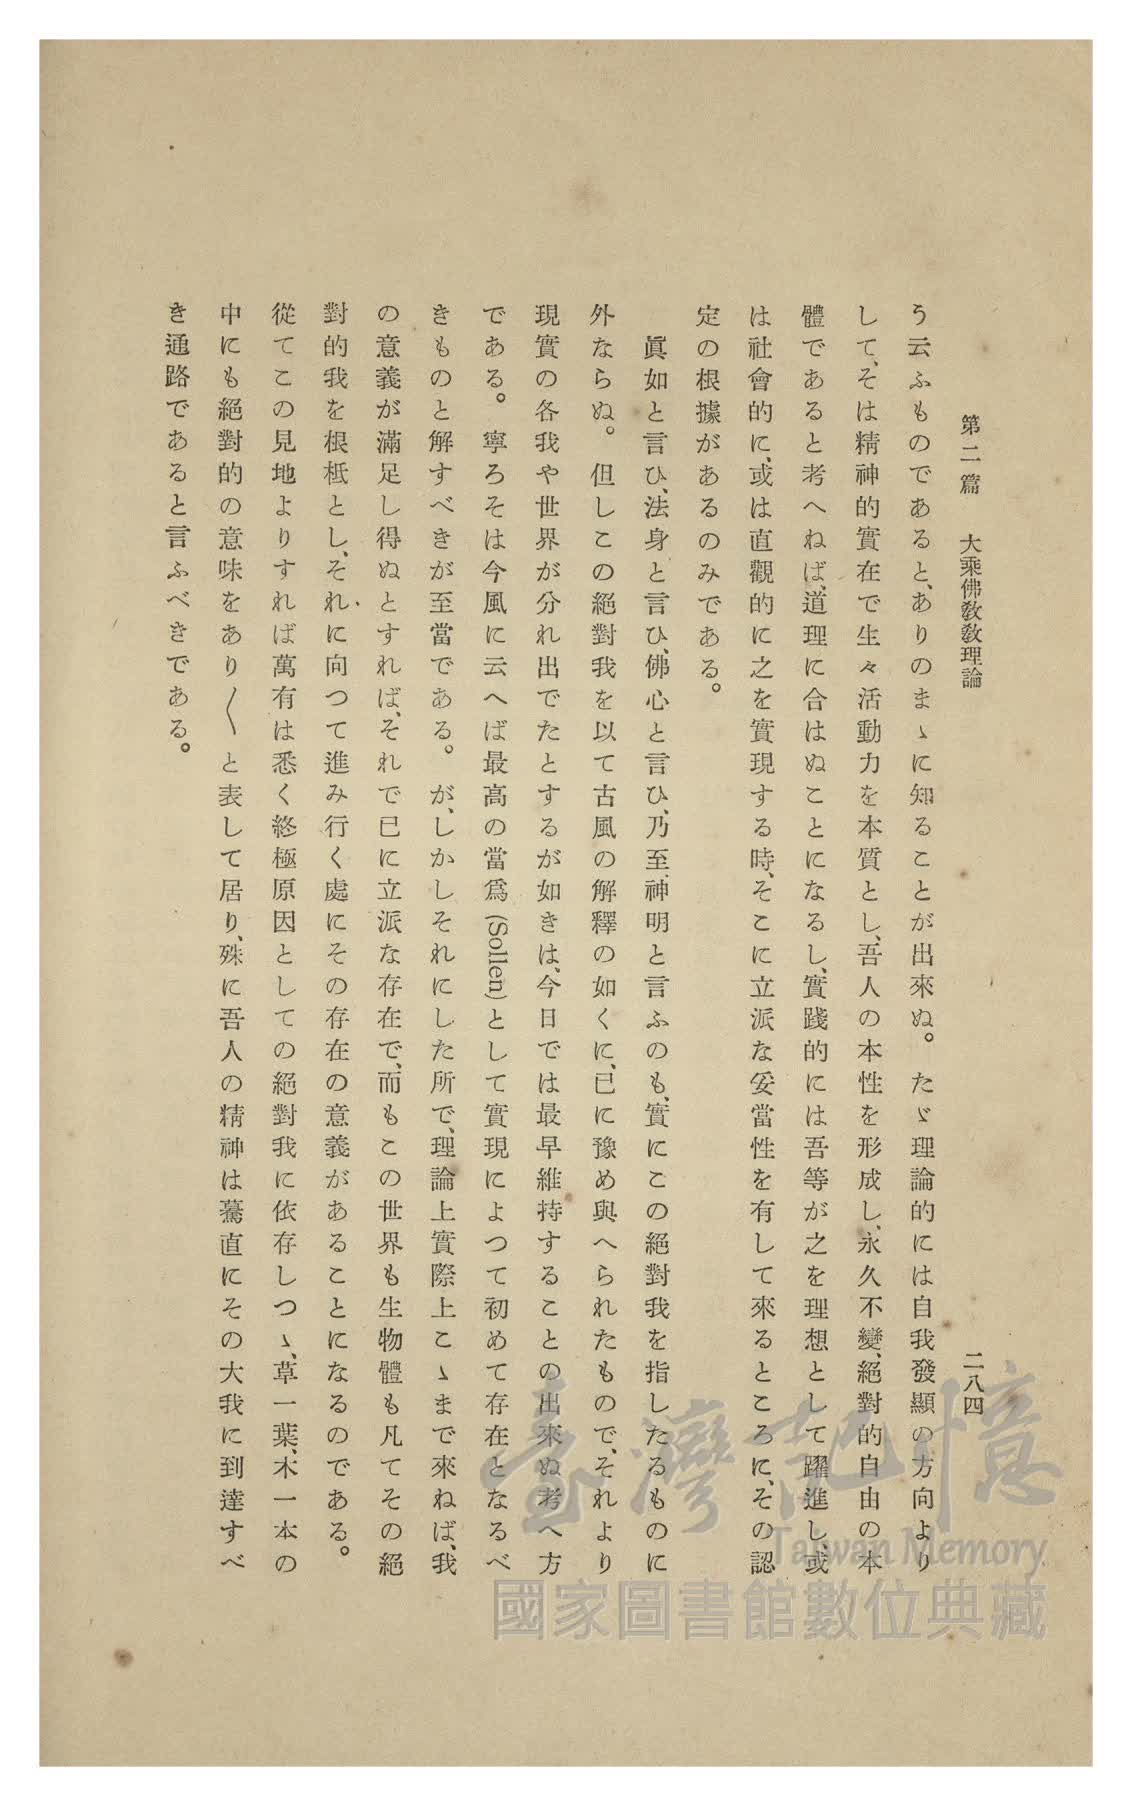 第二篇　大乘佛敎敎理論　二八四
う云ふものであると、ありのまゝに知ることが出來ぬ。たゞ理論的には自我發顯の方向より
して、そは精神的實在で生々活動力を本質とし、吾人の本性を形成し、永久不變、絕對的自由の本
體であると考へねば、道理に合はぬことになるし、實踐的には吾等が之を理想として躍進し、或
は社會的に、或は直觀的に之を實現する時、そこに立派な妥當性を有して來るところに、その認
定の根據があるのみである。
眞如と言ひ、法身と言ひ、佛心と言ひ、乃至神明と言ふのも、實にこの絕對我を指したるものに
外ならぬ。但しこの絕對我を以て古風の解釋の如くに、已に豫め與へられたもので、それより
現實の各我や世界が分れ出でたとするが如きは、今日では最早維持することの出來ぬ考へ方
である。寧ろそは今風に云へば最高の當爲(Sollen)として實現によつて初めて存在となるべ
きものと解すべきが至當である。が、しかしそれにした所で、理論上實際上こゝまで來ねば、我
の意義が滿足し得ぬとすれば、それで已に立派な存在で、而もこの世界も生物體も凡てその絕
對的我を根柢とし、それに向つて進み行く處にその存在の意義があることになるのである。
從てこの見地よりすれば萬有は悉く終極原因としての絕對我に依存しつゝ、草一葉、木一本の
中にも絕對的の意味をあり〱と表して居り、殊に吾人の精神は驀直にその大我に到達すべ
き通路であると言ふべきである。
臺灣記憶
Taiwan Memory
國家圖書館數位典藏